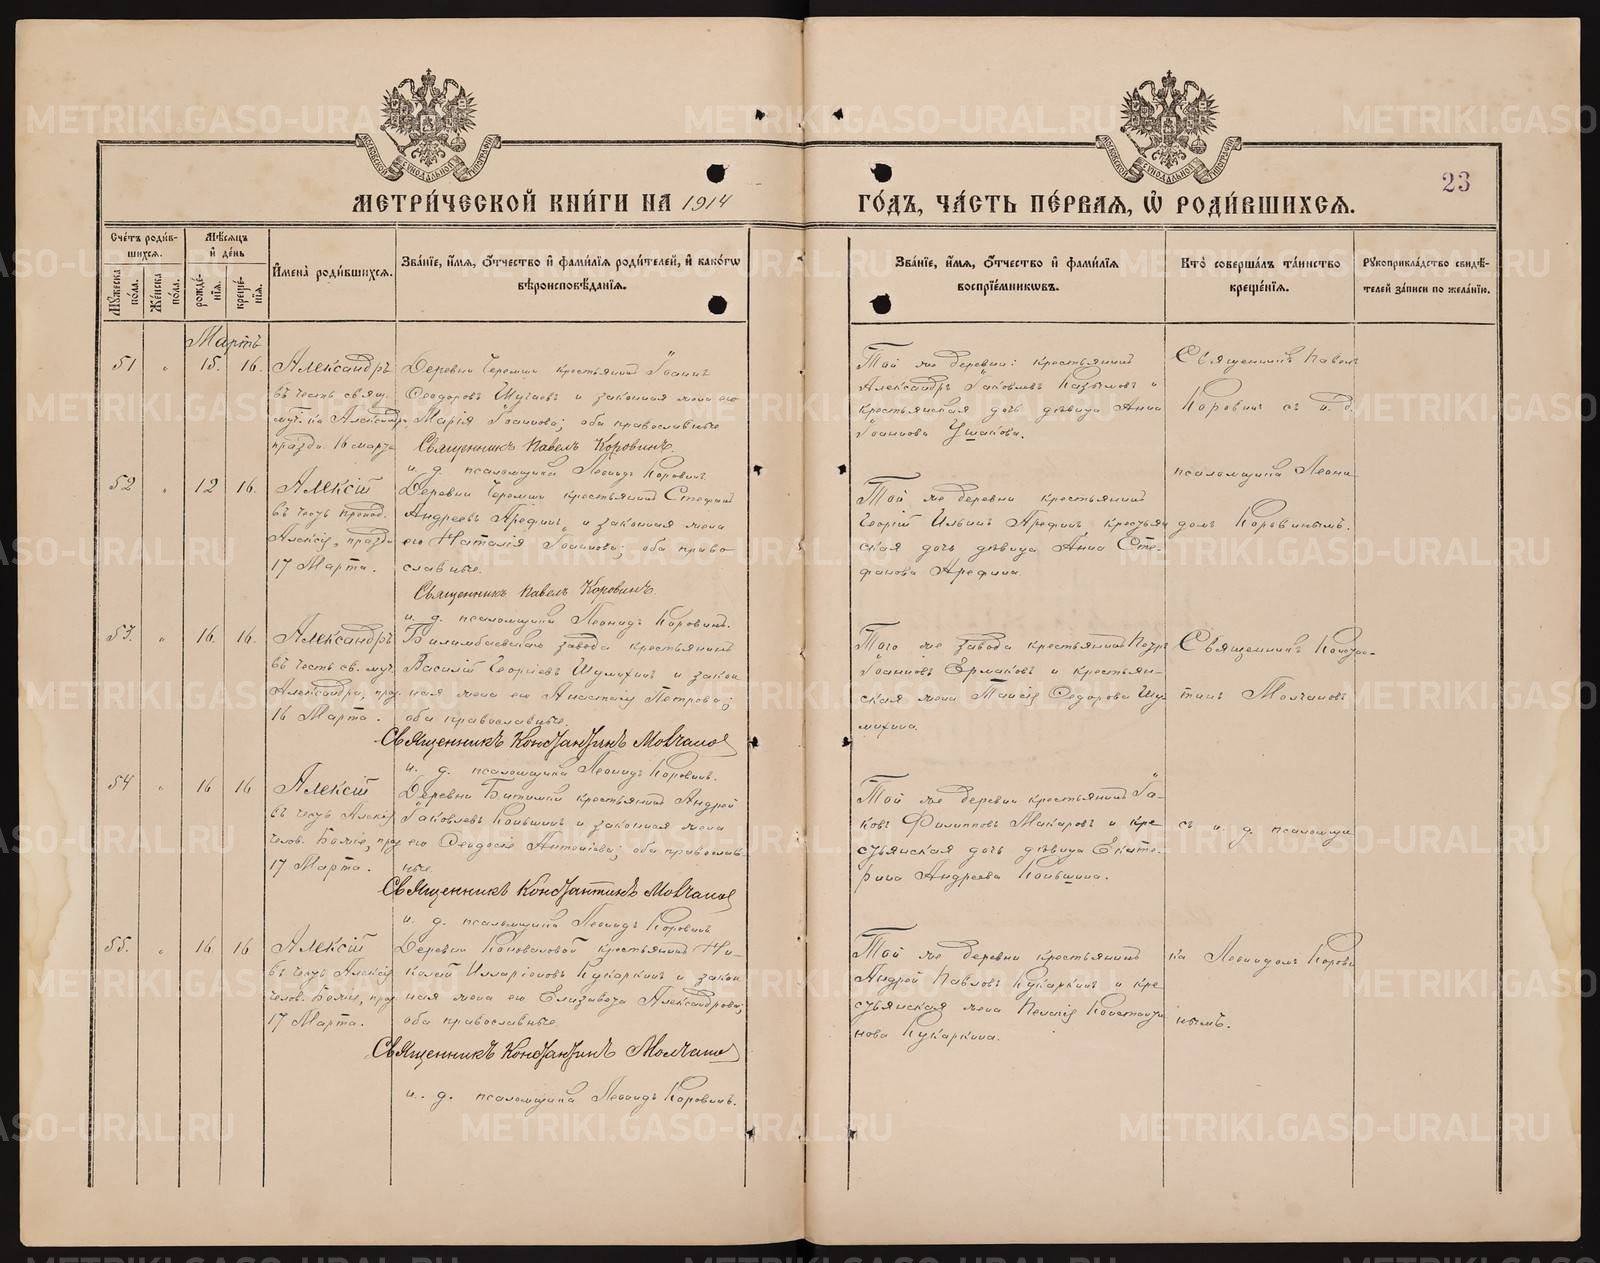 МЕТРИ́ЧЕСКОЙ КНИ́ГИ НА 1914
ГО́ДЪ, ЧА́СТЬ ПЕ́РВАЯ, Ѡ҆ РОДИ́ВШИХСЯ.
23
Сче́тъ роди́в-
шихся.
Мѣ́сяцъ
и҆ де́нь
Му́жеска по́ла.
Же́нска по́ла.
рожде́-
нїя.
креще́-
нїя.
И҆мена̀ роди́вшихся.
Зва́нїе, и҆́мя, ѻ҆́тчество и҆ фами́лїя роди́телей, и҆ како́гѡ
вѣроисповѣ́данїя.
Зва́нїе, и҆́мя, ѻ҆́тчество и҆ фами́лїя
воспрїе́мникѡвъ.
Кто̀ соверша́лъ та́инство
креще́нїя.
Рукоприкла́дство свидѣ́-
телей за́писи по жела́нїю.
Мартъ
51 " 15. 16. Александръ
въ честь свящ.
муч-ка Александр.
празд. 16 марта
Деревни Черемши крестьянинъ Іоаннъ
Ѳеодоровъ и законная жена его
Марія Іоаннова; оба православные
Священникъ Павелъ Коровинъ.
и. д. псаломщика Леонидъ Коровинъ.
Той же деревни: крестьянинъ
Александръ Іаковлевъ и
крестьянская дочь дѣвица Анна
Іоаннова Ушакова.
Священникъ Павелъ
Коровинъ съ и. д.
псаломщика Леони-
домъ Коровинымъ.
52 " 12 16. Алексій
въ честь препод.
Алексія, празд.
17 Марта.
Деревни Черемши крестьянинъ Стефанъ
Андреевъ Арефинъ и законная жена
его Наталія Іоаннова; оба право-
славные.
Священникъ Павелъ Коровинъ.
и. д. псаломщика Леонидъ Коровинъ.
Той же деревни крестьянинъ
Георгій Ильинъ Арефинъ крестьян
ская дочь дѣвица Анна Сте-
фанова Арефина.
53. " 16. 16. Александръ
въ честь св. муч.
Александра, праз.
16 Марта.
Билимбаевскаго завода крестьянинъ
Василій Георгіевъ Шумихинъ и закон
ная жена его Анастасія Петрова;
оба православные.
Священникъ Константинъ Молчановъ
и. д. псаломщика Леонидъ Коровинъ.
Того же завода крестьянинъ Петръ
Іоанновъ Ермаковъ и крестьян-
ская жена Таисія Ѳедорова Шу
михина.
Священникъ Констан-
тинъ Молчановъ
съ и. д. псаломщи
ка Леонидомъ Корови
нымъ.
54 " 16 16 Алексій
въ честь Алексія
челов. Божія, праз
17 Марта.
Деревни Битимки крестьянинъ Андрей
Іаковлевъ Коньшинъ и законная жена
его Ѳеодосія Антоніева; оба православ
ные.
Священникъ Константинъ Молчановъ
и. д. псаломщика Леонидъ Коровинъ
Той же деревни крестьянинъ Іа-
ковъ Филипповъ Макаровъ и кре
стьянская дочь дѣвица Екате-
рина Андреева Коньшина.
55. " 16. 16 Алексій
въ честь Алексія
челов. Божія, праз
17 Марта.
Деревни Коноваловой крестьянинъ Ни-
колай Илларіоновъ Кукаркинъ и закон
ная жена его Елизавета Александрова;
оба православные.
Священникъ Константинъ Молчановъ
и. д. псаломщика Леонидъ Коровинъ.
Той же деревни крестьянинъ
Андрей Павловъ Кукаркинъ и кре
стьянская жена Пелагія Константи
нова Кукаркина.
METRIKI.GASO-URAL.RU